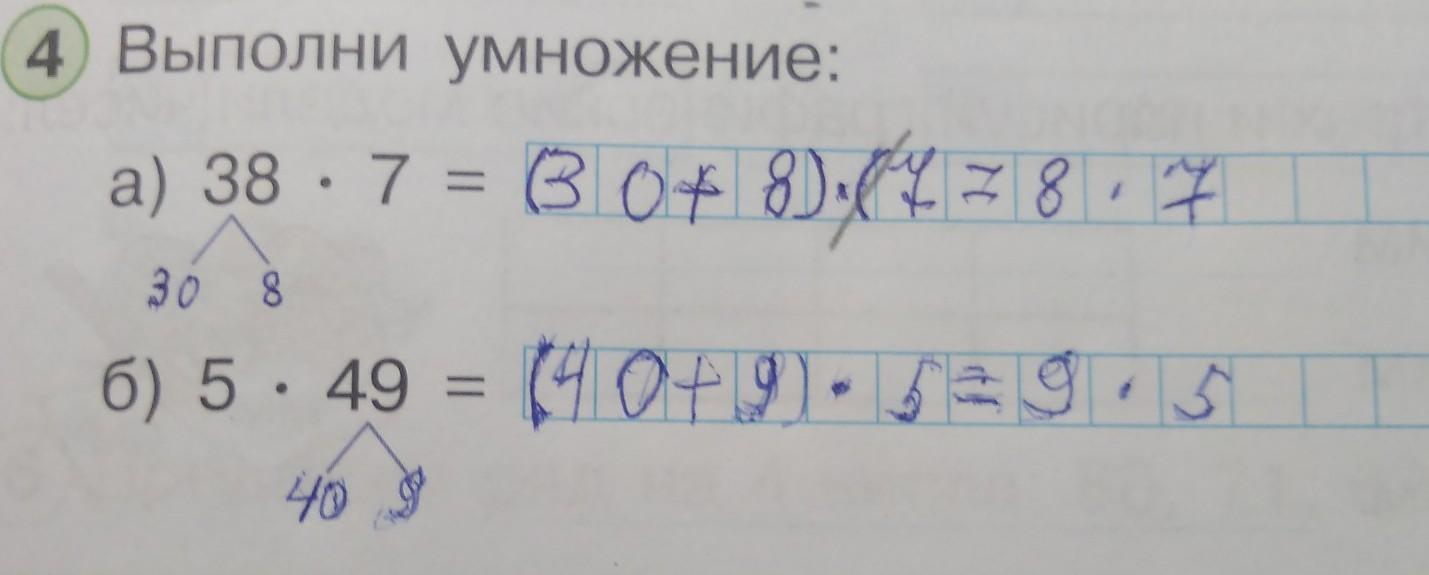 4 Выполни умножение:
а) 38 · 7 = (30 + 8) · (7 = 8 · 7
30 8
б) 5 · 49 = (40 + 9) · 5 = 9 · 5
40 9